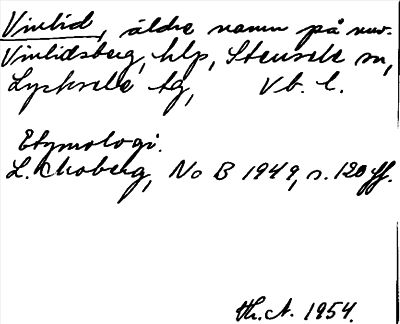 Vinlid, äldre namn på nuv.
Vinlidsberg, hlp, Stensele sn,
Lycksele tg, Vb. l.
Etymologi.
L. Moberg, No B 1949, s. 120 ff.
Th. A. 1954.